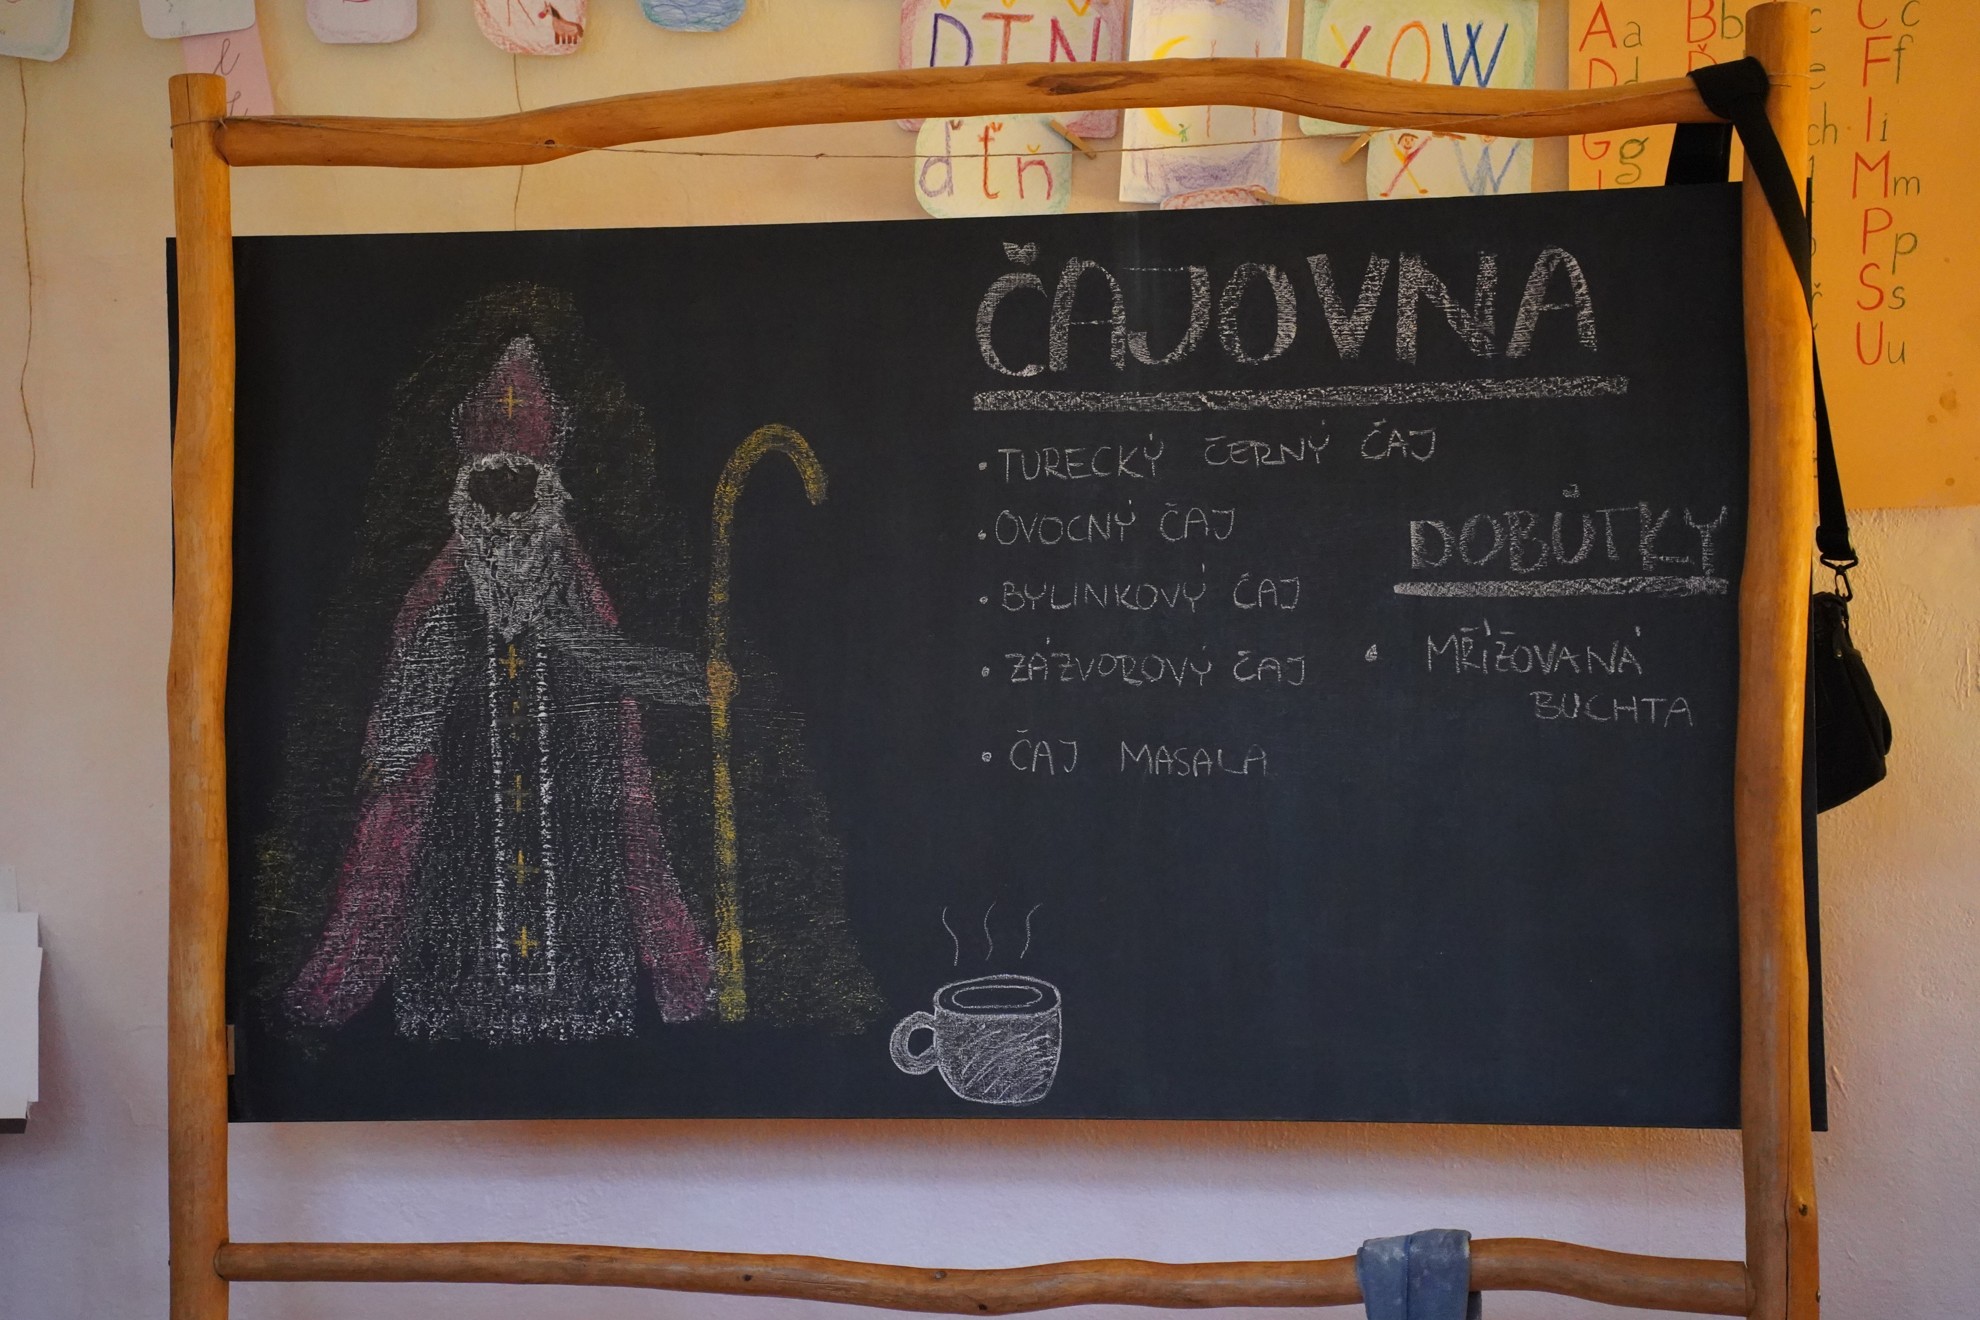 Ď Ť Ň
CH
X Q W
ď ť ň
x w
A a B b C c
F f
G g
ch I i
M m
P p
S s
U u
ČAJOVNA
• TURECKÝ ČERNÝ ČAJ
• OVOCNÝ ČAJ
• BYLINKOVÝ ČAJ
• ZÁZVOROVÝ ČAJ
• ČAJ MASALA
DOBŮTKY
• MŘÍŽOVANÁ
BUCHTA